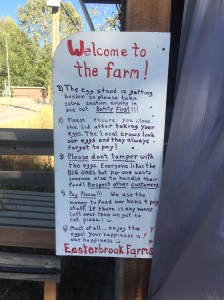 Welcome to
the farm!
1) The egg stand is getting
busier so please take
extra caution pulling in
and out. Safety First!!!
2) Please ensure you close
the lid after taking your
eggs. The local crows love
our eggs and they always
forget to pay!
3) Please don't tamper with
the eggs. Everyone likes the
BIG ONES but no-one wants
someone else to handle their
food! Respect other customers.
4) Pay Please!!! We use the
money to feed our hens & pay
staff. If there is any money
left over then we get to
eat please
5) Most of all... enjoy the
eggs! Your happiness is
our happiness
Easterbrook Farms